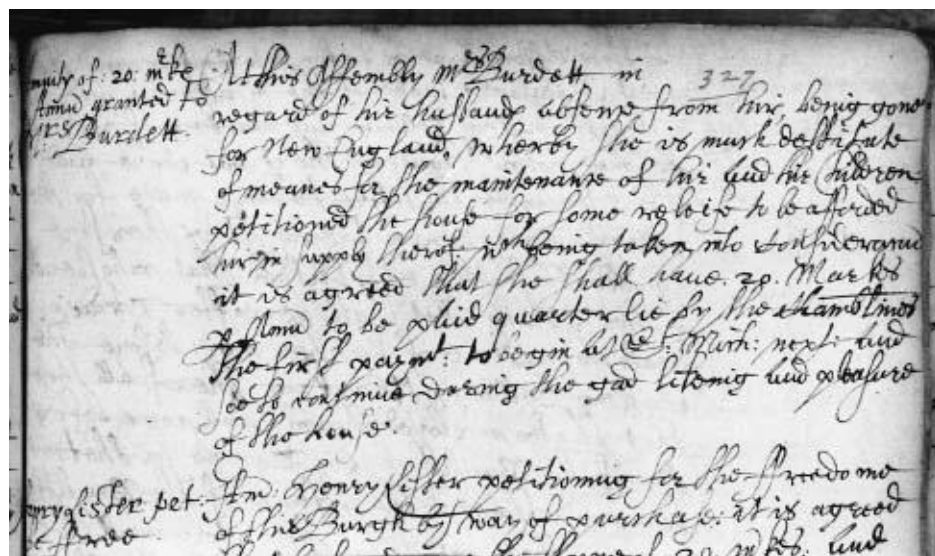 nuity of : 20 : mrkes
Annu granted to
Mrs Burdett
At this Assembly Mrs Burdett in
327
regard of hir husbands absenc from hir, being gone
for New England, wherby she is much destitute
of meanes for the maintenance of hir and hir Children
petitioned the house for some releife to be afforded
hir in supply therof, wch being taken into Consideracion
it is agreed that she shall have 20. Markes
p Annu to be paid quarterlie by the Chamblines
the first paymt : to begin at St : Mich : next and
soe to continue during the good likeing and pleasure
of the house.
enry Lister pet :
free
Itm : Henry Lister petitioning for the freedome
of this Burgh by way of purchase : it is agreed
20 mkes : and